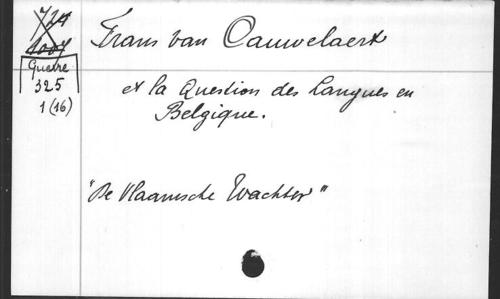 Frans van Cauwelaert
Guerre
325
1 (16)
et la Question des Langues en
Belgique.
"De Vlaamsche Wachter"